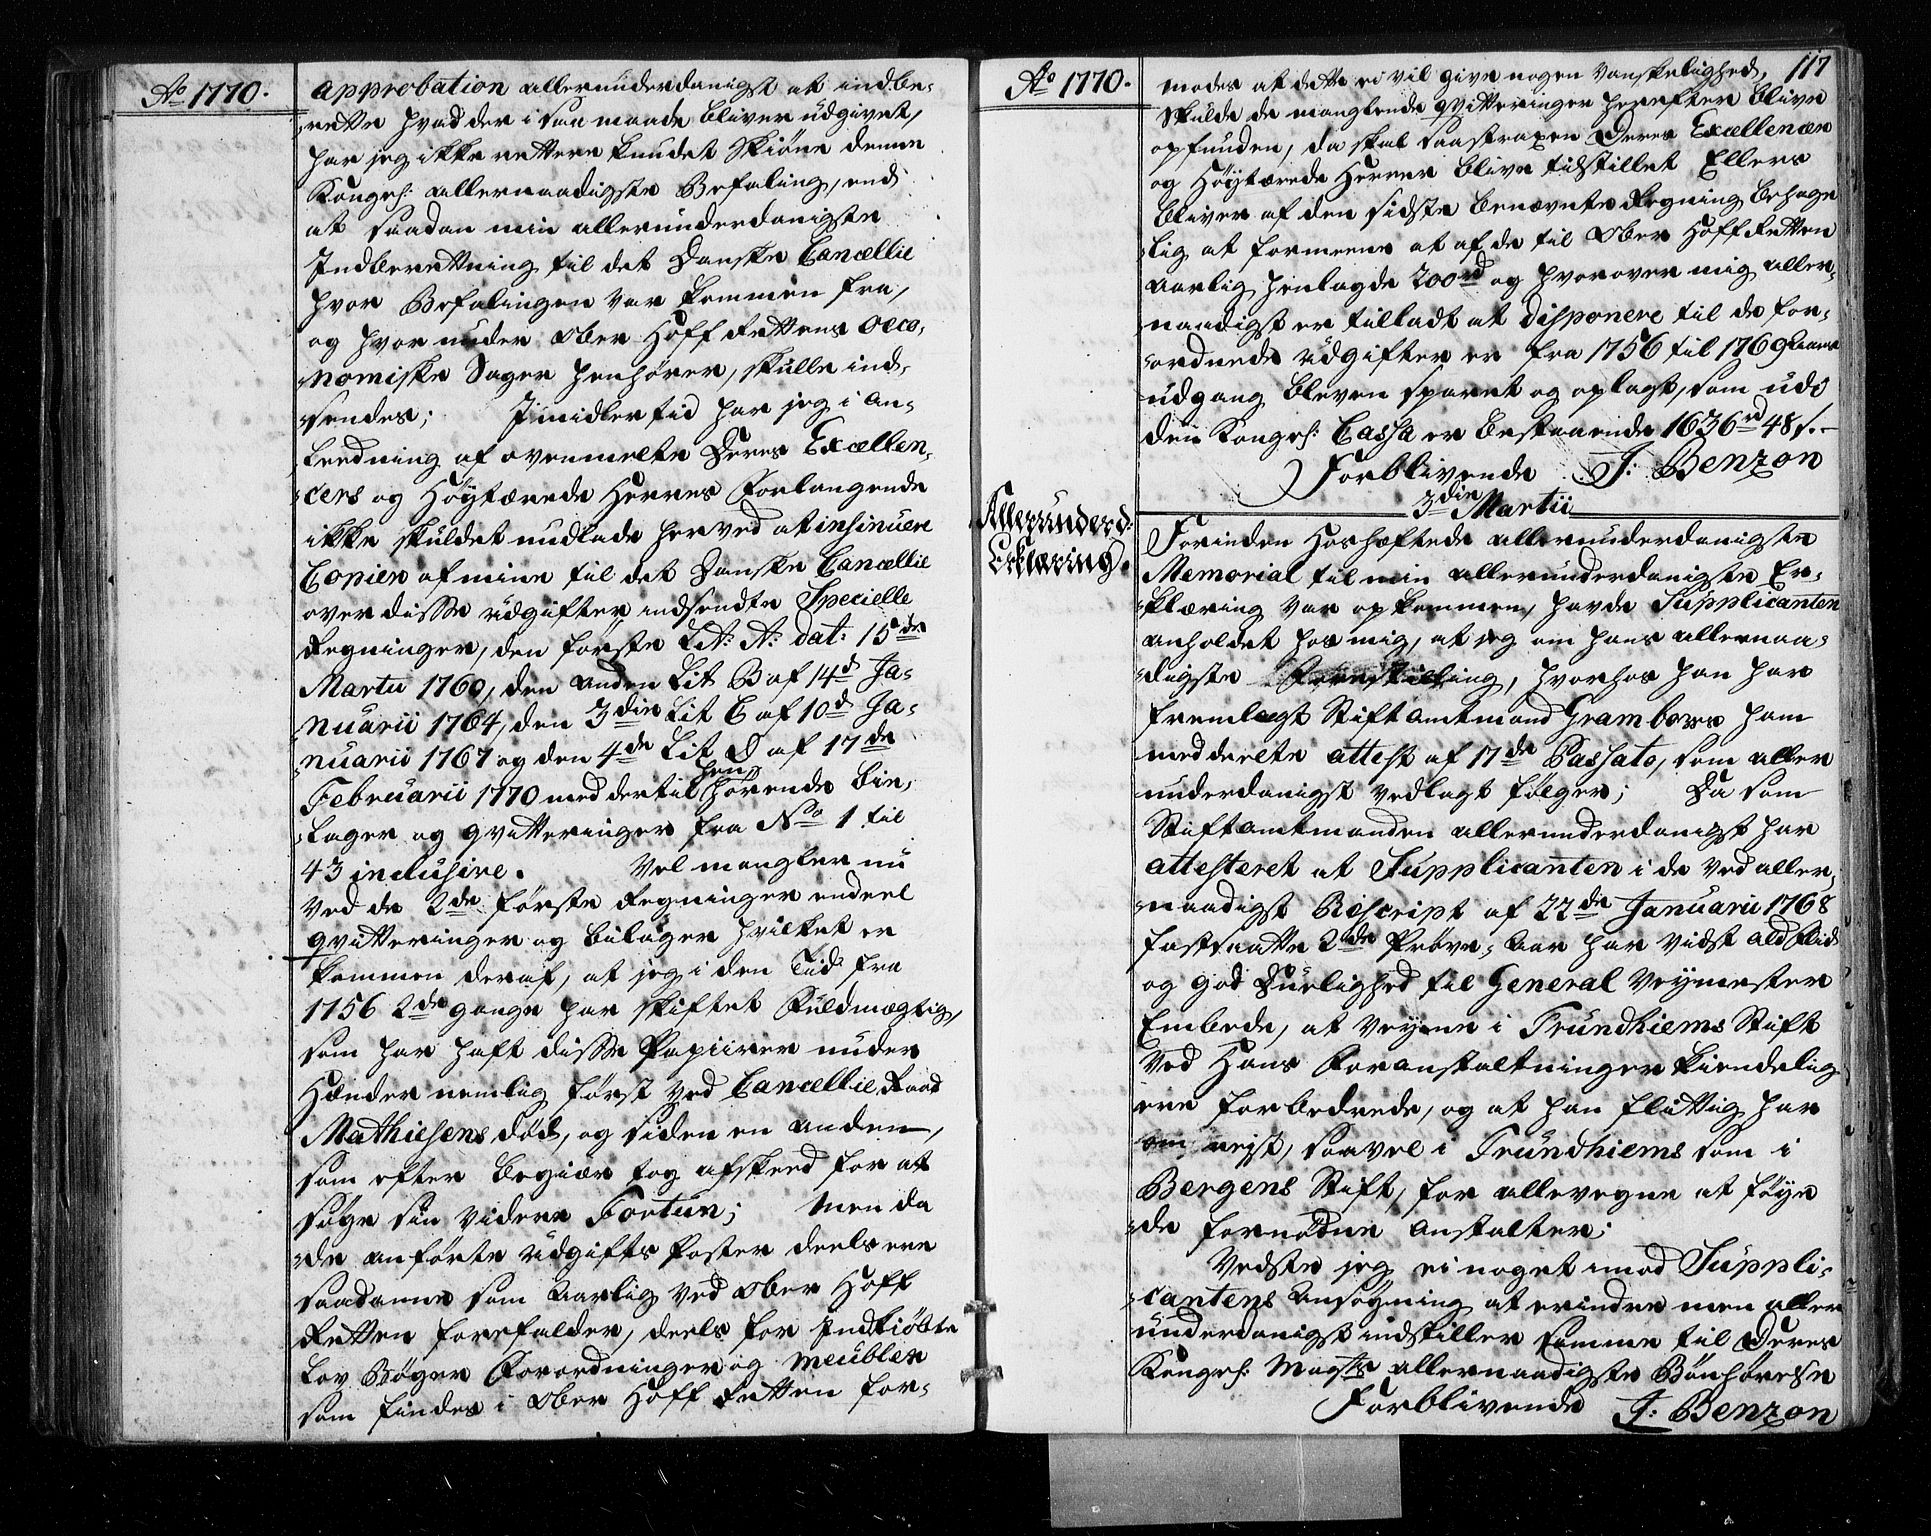 Ao 1770.
approbation allerunderdanigst at indbe-
rette hvad der i saa maade bliver udgivet,
har jeg ikke rettere kundet skiøne denne
Kongel: allernaadigste Befaling, end
at saadan min allerunderdanigste
Indberettning til det Danske Cancellie
hvor Befalingen var kommen fra,
og hvorunder Ober Hoff Rettens oeco-
nomiske Sager henhører, skulle ind-
sendes; Imidlertid har jeg i An-
leedning af ovenmelte Deres Excellen-
cers og Høytærede Herres Forlangende
ikke skuldet undlade herved at insinuere
Copier af mine til det Danske Cancellie
over disse udgifter indsendte Specielle
Regninger, den første Lit: A: dat: 15de
Martii 1760, den anden Lit B af 14d Ja-
nuarii 1764, den 3die Lit C af 10d Ja-
nuarii 1767 og den 4de Lit D af 17de
Februarii 1770 med dertil henhørende Bi-
lager og qvitteringer fra No 1 til
43 inclusive. Vel mangler nu
ved de 2de første Regninger endeel
qvitteringer og bilager hvilket er
kommen deraf, at jeg i den Tid fra
1756 2de gange har skiftet Fuldmægtig,
som har haft disse Papiirer under
Hænder nemlig først ved Cancellie Raad
Mathiesens død, og siden en anden,
som efter begiær tog afskeed for at
søge sin videre Fortun; Men da
de anførte udgifts Poster deels ere
saadanne som Aarlig ved Ober Hoff
Retten forefalder, deels for Indkiøbte
Lov Bøger Forordninger og Meubler
som findes i Ober Hoff Retten for-
Ao 1770.
117
modes at dette ei vil give nogen Vanskelighed,
Skulde de manglende qvitteringer herefter blive
opfunden, da skal saa straxen Deres Excellencer
og Høytærede Herrer blive tilstillet Ellers
bliver af den sidste benævnte Regning behage
lig at fornemme at af de til Ober Hoff Retten
aarlig henlagde 200rd og hvorover mig aller-
naadigst er tilladt at disponere til de for-
ordnede udgifter er fra 1756 til 1769 Aars
udgang bleven sparet og oplagt, som udi
den Kongel: Cassa er bestaaende 1636rd 48s.
Forblivende J: Benzon
3die Martii
Allerunderd:
Erklæring.
Forinden Hoshæftede allerunderdanigste
Memorial til min allerunderdanigste Er-
klæring var opkommen, havde Supplicanten
anholdet hos mig, at jeg om hans allernaa-
digste Forestilling, hvorhos han har
fremlagt Stiftamtmand Grambows ham
meddeelte attest af 17de Passato, som aller
underdanigst vedlagt følger; Da som
Stiftamtmanden allerunderdanigst har
attesteret at Supplicanten i de ved aller-
naadigst Rescript af 22de Januarii 1768
fastsatte 2de Prøve-Aar har vidst al Flid
og god Duelighed til General Veymester
Embede, at Veyene i Trundhiems Stift
ved Hans Foranstaltninger kiendelig
ere forbedrede, og at han flittig har
om rejst, saavel i Trundhiems som i
Bergens Stift, for allevegne at føye
de fornødne Anstalter;
Vedste jeg ei noget imod Suppli-
cantens Ansøgning at erindre men aller
underdanigst indstiller samme til Deres
Kongel: Maysts allernaadigste Bønhørelse
Forblivende J: Benzon